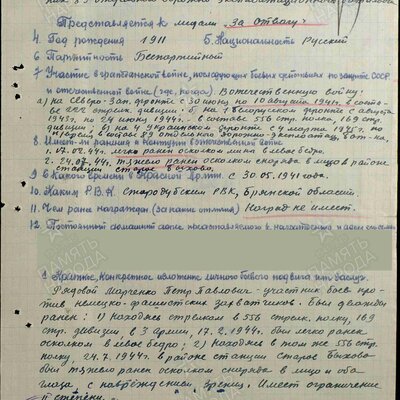 Представляется к медали „За Отвагу"
4. Год рождения 1911 5. Национальность Русский
6. Партийность Беспартийный
7. Участие в гражданской войне, последующих боевых действиях по защите СССР
и отечественной войне (где, когда). В отечественную войну:
а) на Северо-Зап. фронте с 30 июня по августа 1941г. в составе
стр. дивизии б) на 1 Белорусском фронте с августа
1943г. по 24 июня 1944г. в составе 556 стр. полка, 169 стр.
дивизии в) на 4 Украинском фронте с 4 марта 1945г. по
в составе 89 отдельно дорожно-эксплоатац. бат-на.
8. Имеет ли ранения и контузии в отечественной войне
1. 17.02.44г. легко ранен осколком мины в левое бедро.
2. 24.07.44г. тяжело ранен осколком снаряда в лицо в районе
станции старое Быхово.
9. С какого времени в Красной Армии. С 30.05.1941 года.
10. Каким Р.В.К. Стародубским РВК, Брянской области.
11. Чем ранее награжден (за какие отличия) Наград не имеет.
12. Постоянный домашний адрес представляемого к награждению и адрес семьи
Краткое, конкретное изложение личного боевого подвига или заслуг.
Рядовой Марченко Петр Павлович - участник боев про-
тив немецко-фашистских захватчиков. Был дважды
ранен: 1) находясь стрелком в 556 стрелк. полку, 169
стр. дивизии в 3 армии, 17.2.1944г. был легко ранен
осколком в левое бедро; 2) находясь в том же 556 стр.
полку, 24.7.1944г. в районе станции Старое Быхово
был тяжело ранен осколком снаряда в лицо и оба
глаза, с повреждением зрения. Имеет ограничение
II степени.
ПАМЯТЬ
НАРОДА